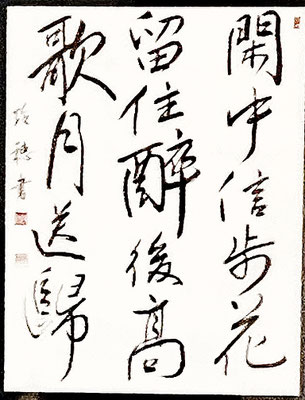 閑中信步花
留住醉後高
歌月送歸